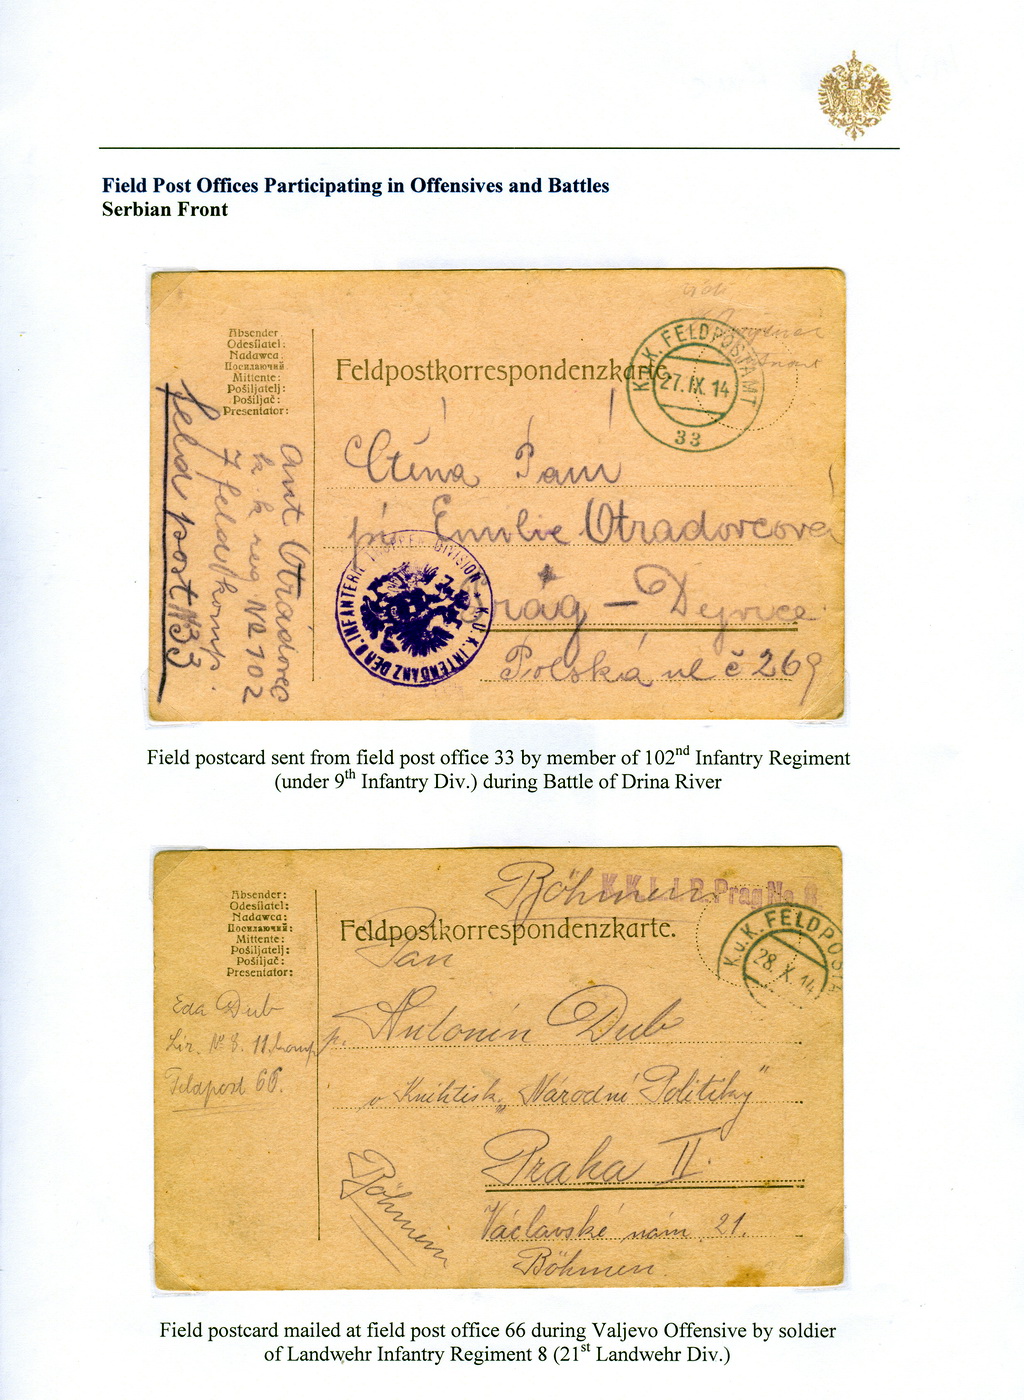 Field Post Offices Participating in Offensives and Battles
Serbian Front
Absender
Odesílatel:
Nadawca:
Посилаючий
Mittente:
Pošiljatelj:
Pošiljač:
Presentator:
Feldpostkorrespondenzkarte.
K.u.K. FELDPOSTAMT
27.IX.14
33
Ctěná Paní
pí Emilie Otradovcova
Prag - Dejvice
Polská ul č 269
Ant Otradovec
k k reg No 102
7 feldkomp.
feld post N33
K.U.K. INTENDANZ DER 9. INFANTERIE TRUPPEN DIVISION
Field postcard sent from field post office 33 by member of 102nd Infantry Regiment
(under 9th Infantry Div.) during Battle of Drina River
Böhmen
K.K.L.I.R. Prag No. 8
Absender:
Odesílatel:
Nadawca:
Посилаючий:
Mittente:
Pošiljatelj:
Pošiljač:
Presentator:
Feldpostkorrespondenzkarte.
K.u.K. FELDPOSTA
28.X.14
Pan
p. Antonín Dub
v Knihtisk. „Národní Politiky"
Praha II.
Václavské nám. 21.
Böhmen.
Böhmen
Eda Dub
Lir. No 8. 11. komp.
Feldpost 66.
Field postcard mailed at field post office 66 during Valjevo Offensive by soldier
of Landwehr Infantry Regiment 8 (21st Landwehr Div.)